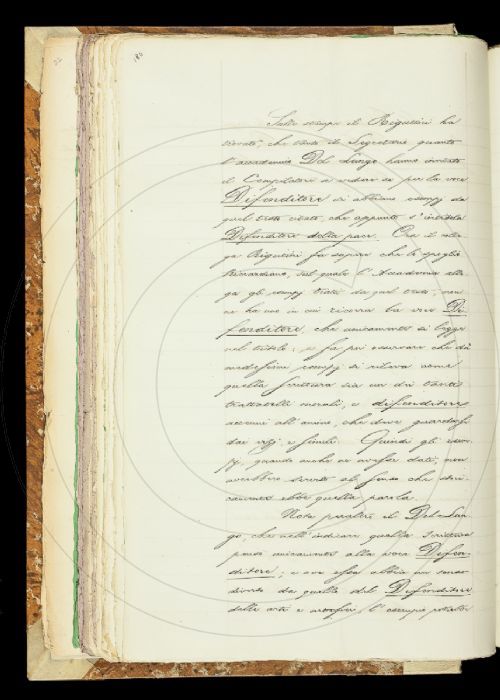 180
Sullo scorpo il Rigutini ha
trovato, che tanto il Segretario quanto
l'accademico Del Lungo hanno invitato
il Compilatore a vedere se per la voce
Difenditore si abbiano esempj da
quel tratto citato, che appunto s'intitola
Difenditore della pace. Ora il colle-
ga Rigutini fa sapere che lo spoglio
Riccardiano, sul quale l'Accademia alle-
ga gli esempj tratti da quel testo, non
ne ha uno in cui ricorra la voce Di-
fenditore, che unicamente si legge
nel titolo; e fa poi osservare che da'
medesimi esempj si rileva come
quella scrittura sia un dei tanti
trattatelli morali, e difenditore
accenni all'anima, che deve guardarsi
dai vizj, e simili. Quindi gli esem-
pj, quando anche ne avesse dati, non
avrebbero servito al senso che
avrebbe quella parola.
Nota peraltro il Del Lun-
go, che nell'indicare quella Scrittura
pensò unicamente alla voce Difen-
ditore, e ove essa abbia un senso
diverso da quello del Difenditore
delle arti e mestieri, l'esempio potrebbe